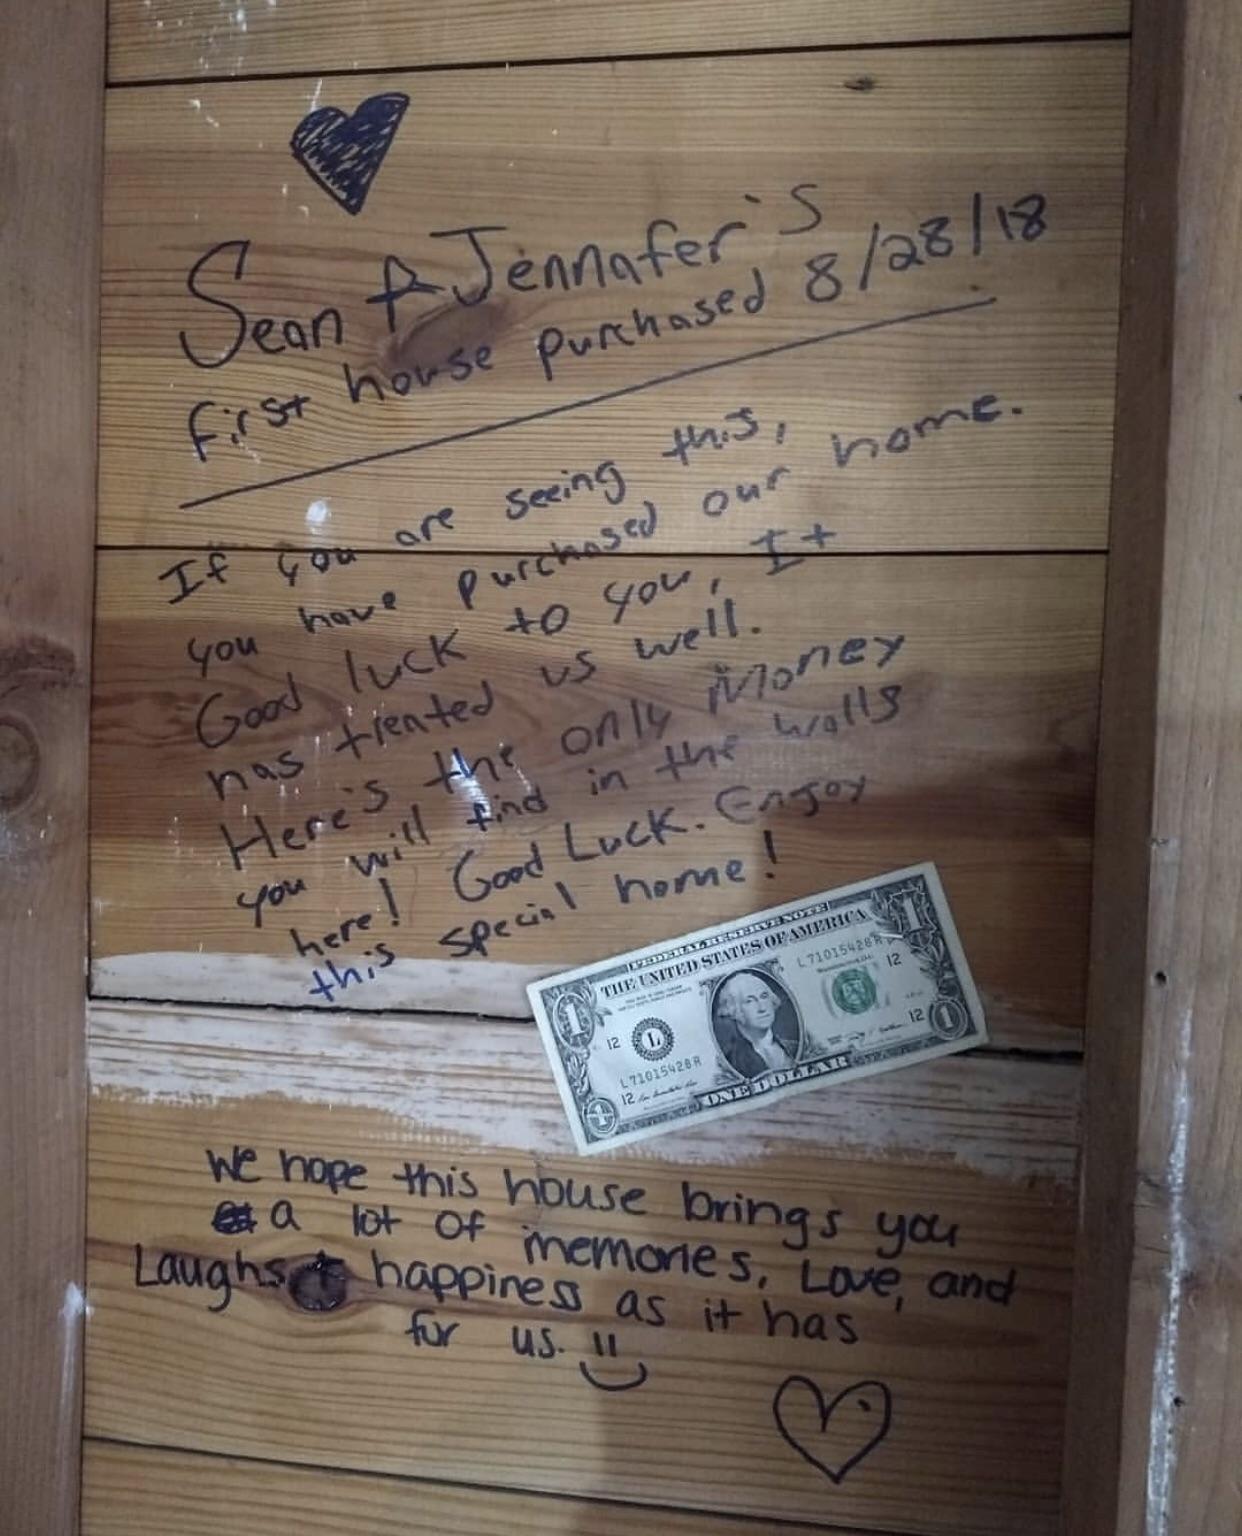 Sean & Jennafer's
first house purchased 8/28/18
If you are seeing this,
you have purchased our home.
Good luck to you, It
has treated us well.
Here's the only Money
you will find in the walls
here! Good Luck. Enjoy
this special home!
FEDERAL RESERVE NOTE
THE UNITED STATES OF AMERICA
L 71015428 R
12
L
12
L 71015428 R
12
12
ONE DOLLAR
1
1
1
1
We hope this house brings you
a lot of memories, Love, and
Laughs + happiness as it has
for us.